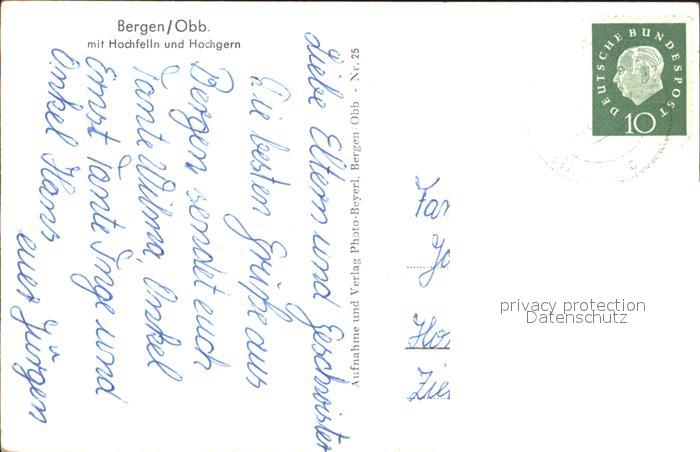 Bergen/Obb.
mit Hochfelln und Hochgern
Liebe Eltern und Geschwister
Die besten Grüße aus
Bergen sendet euch
Tante Wilma, Onkel
Ernst Tante Inge und
Onkel Hans
euer Jürgen
Aufnahme und Verlag Photo-Beyerl, Bergen/Obb - Nr. 25
DEUTSCHE BUNDESPOST
10
Fam
privacy protection
Datenschutz